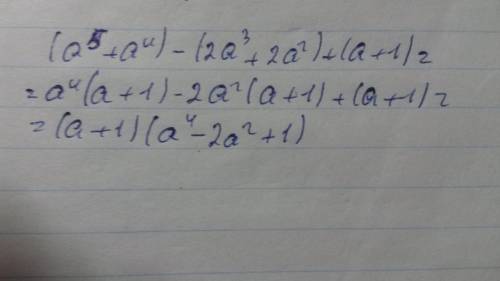 (a⁵+a⁴)-(2a³+2a²)+(a+1)=
=a⁴(a+1)-2a²(a+1)+(a+1)=
=(a+1)(a⁴-2a²+1)